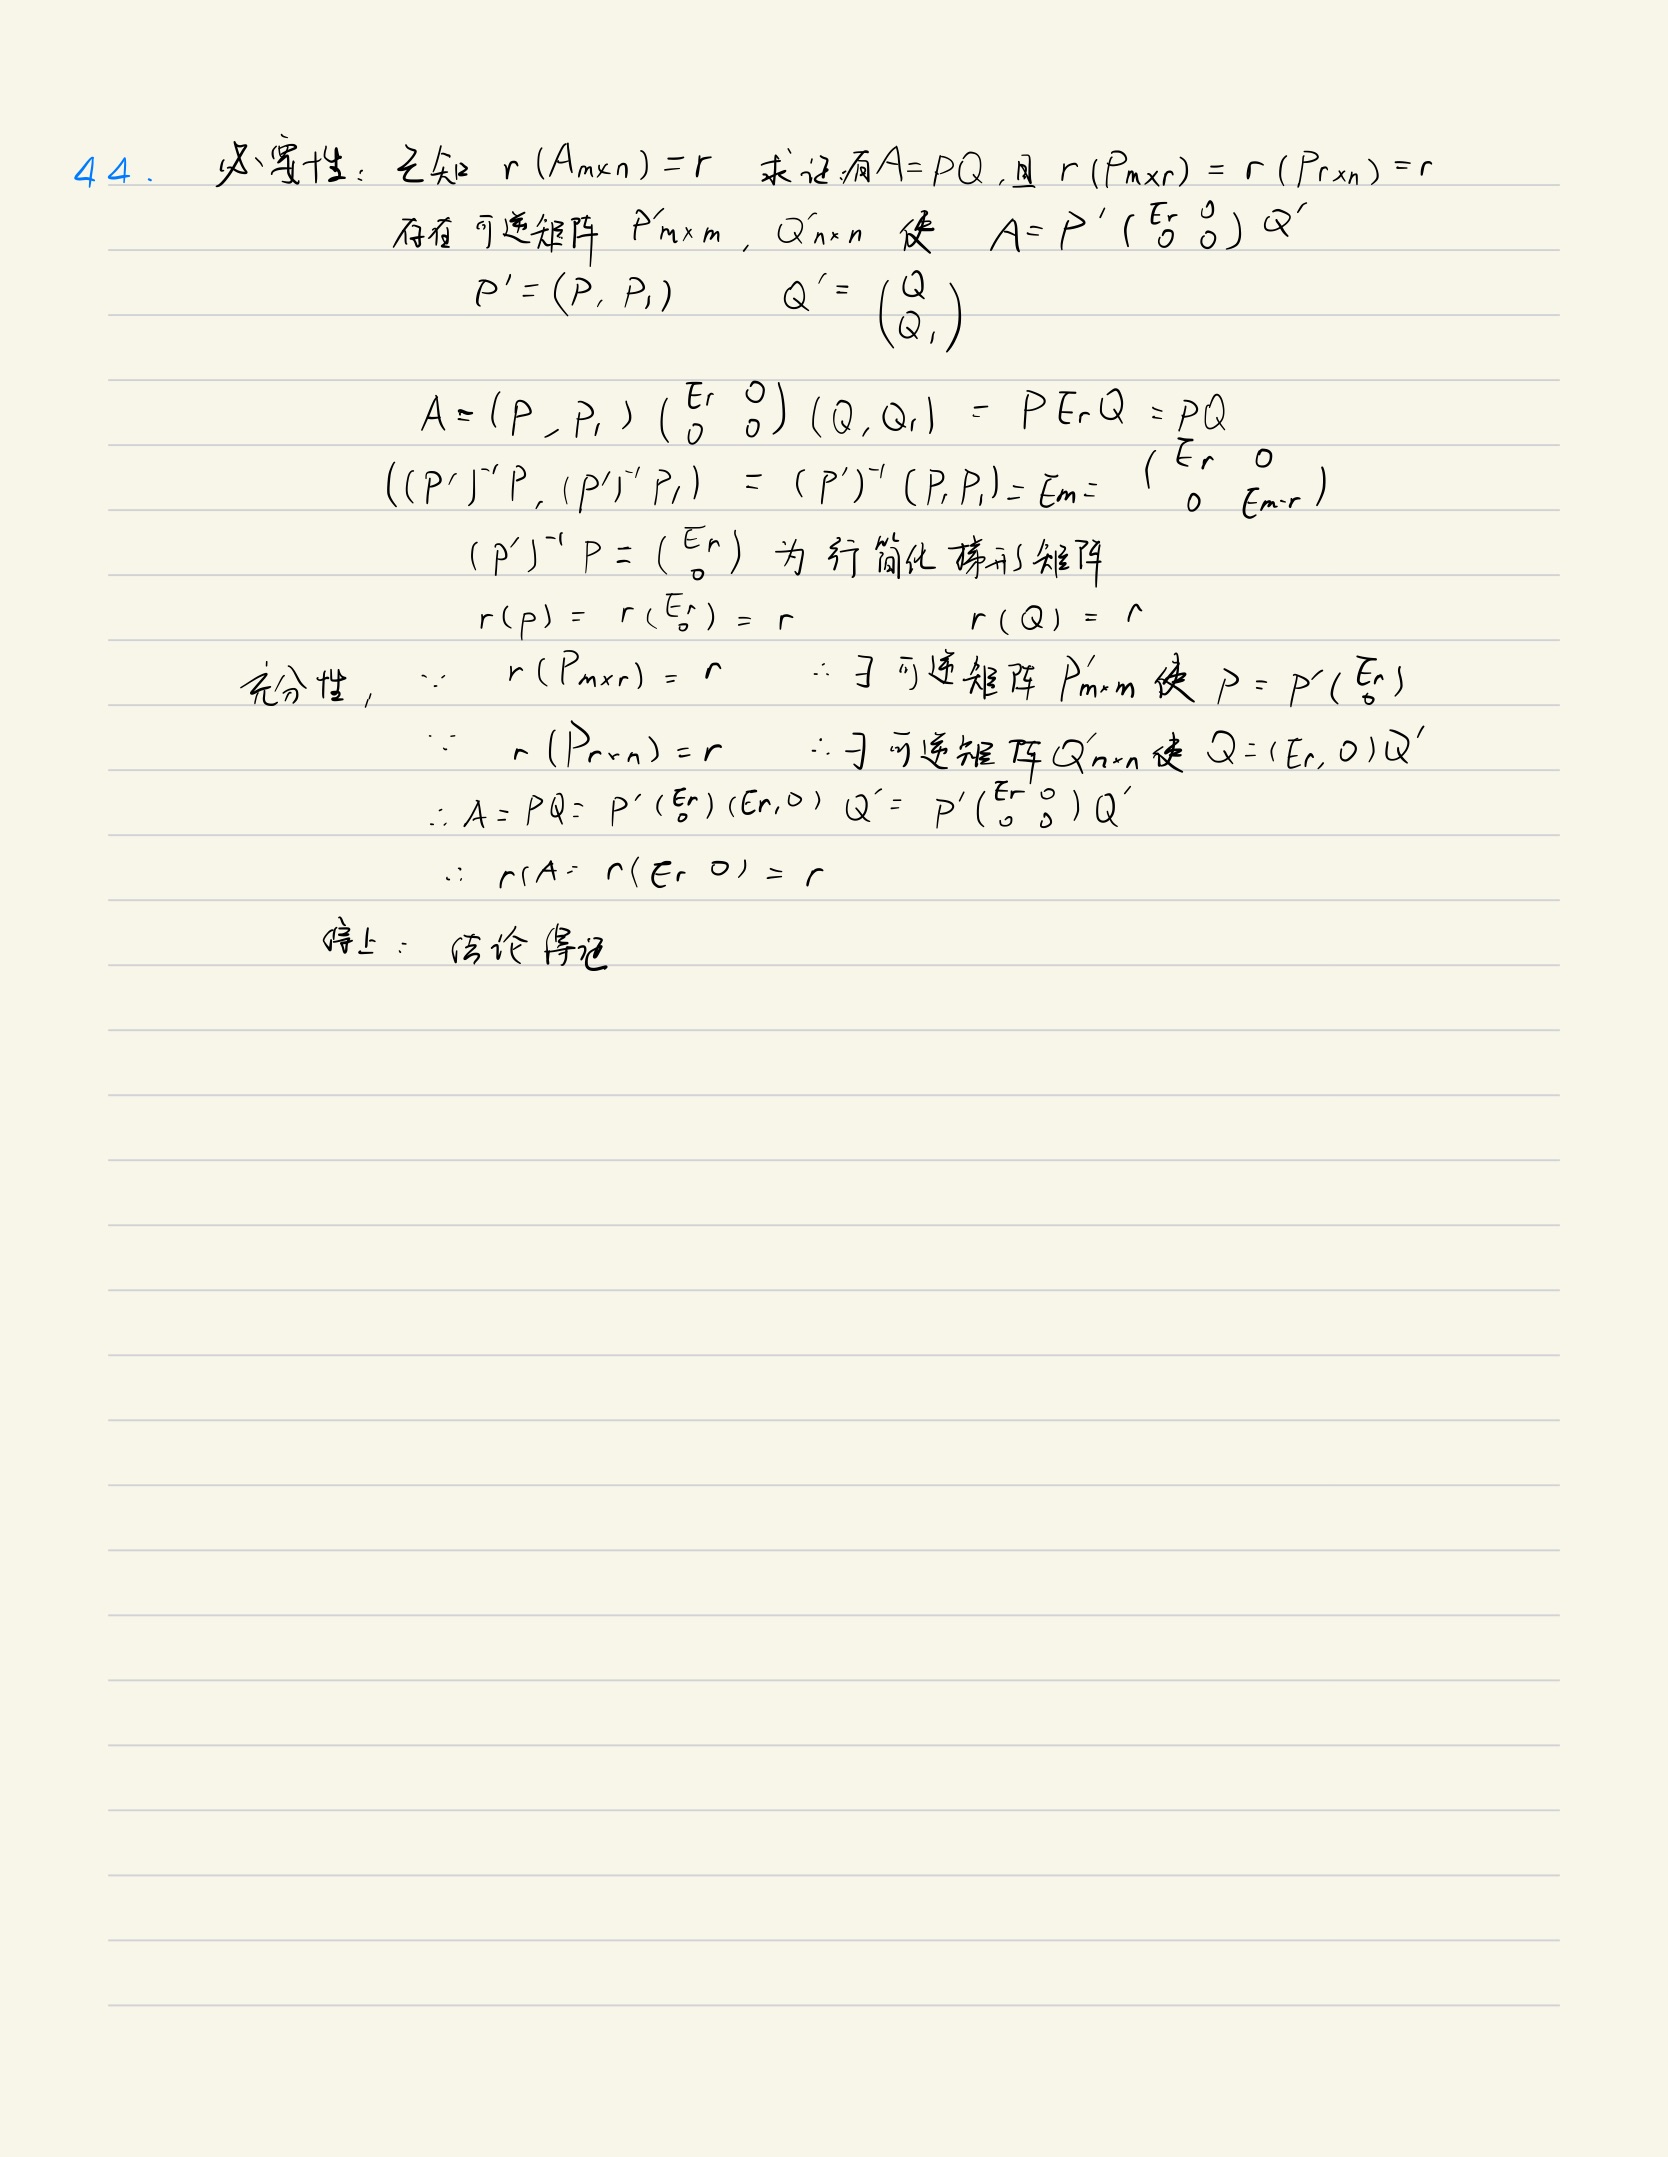 44. 必要性: 已知 r(Am×n)=r 求证:有A=PQ,且 r(Pm×r)=r(Pr×n)=r
存在可逆矩阵 P'm×m, Q'n×n 使 A=P'(Er 0 0 0)Q'
P'=(P, P1) Q'=(Q Q1)
A=(P, P1)(Er 0 0 0)(Q, Q1) = PErQ = PQ
((P')⁻¹P, (P')⁻¹P1) = (P')⁻¹(P, P1)=Em=(Er 0 0 Em-r)
(P')⁻¹P=(Er 0) 为行简化梯形矩阵
r(P)= r(Er 0)=r r(Q)=r
充分性, ∵ r(Pm×r)=r ∴∃可逆矩阵P'm×m使 P=P'(Er 0)
∵ r(Pr×n)=r ∴∃可逆矩阵Q'n×n使 Q=(Er, 0)Q'
∴A=PQ= P'(Er 0)(Er,0) Q'= P'(Er 0 0 0)Q'
∴ r(A= r(Er 0)=r
上: 结论得证